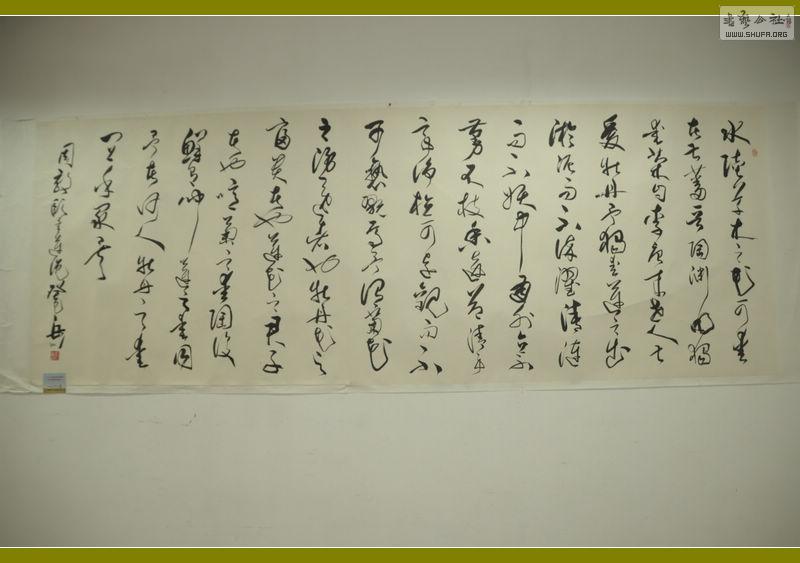 水陸草木之花可愛
者甚蕃晋陶渊明獨
愛菊自李唐来世人甚
愛牡丹予獨愛蓮之出
淤泥而不染濯清漣
而不妖中通外直不
蔓不枝香遠益清亭
亭净植可遠觀而不
可褻玩焉予謂菊花
之隱逸者也牡丹花之
富貴者也蓮花之君子
者也噫菊之愛陶後
鲜有聞蓮之愛同
予者何人牡丹之愛
宜乎眾矣
周敦頤愛蓮説
書藝公社
WWW.SHUFA.ORG